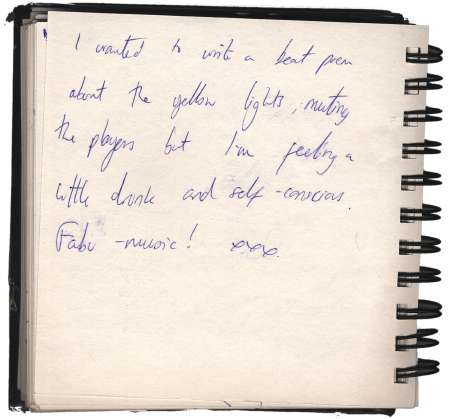 I wanted to write a beat poem
about the yellow lights, muting
the players but I'm feeling a
little drunk and self-conscious.
Fabu-music! xxx.